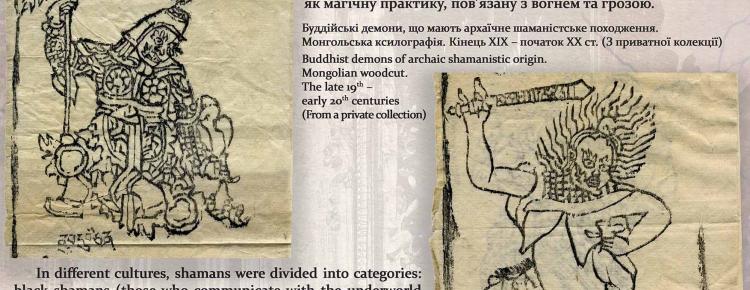 як магічну практику, пов'язану з вогнем та грозою.
Буддійські демони, що мають архаїчне шаманістське походження.
Монгольська ксилографія. Кінець XIX – початок XX ст. (З приватної колекції)
Buddhist demons of archaic shamanistic origin.
Mongolian woodcut.
The late 19th –
early 20th centuries
(From a private collection)
In different cultures, shamans were divided into categories:
black shamans (those who communicate with the underworld